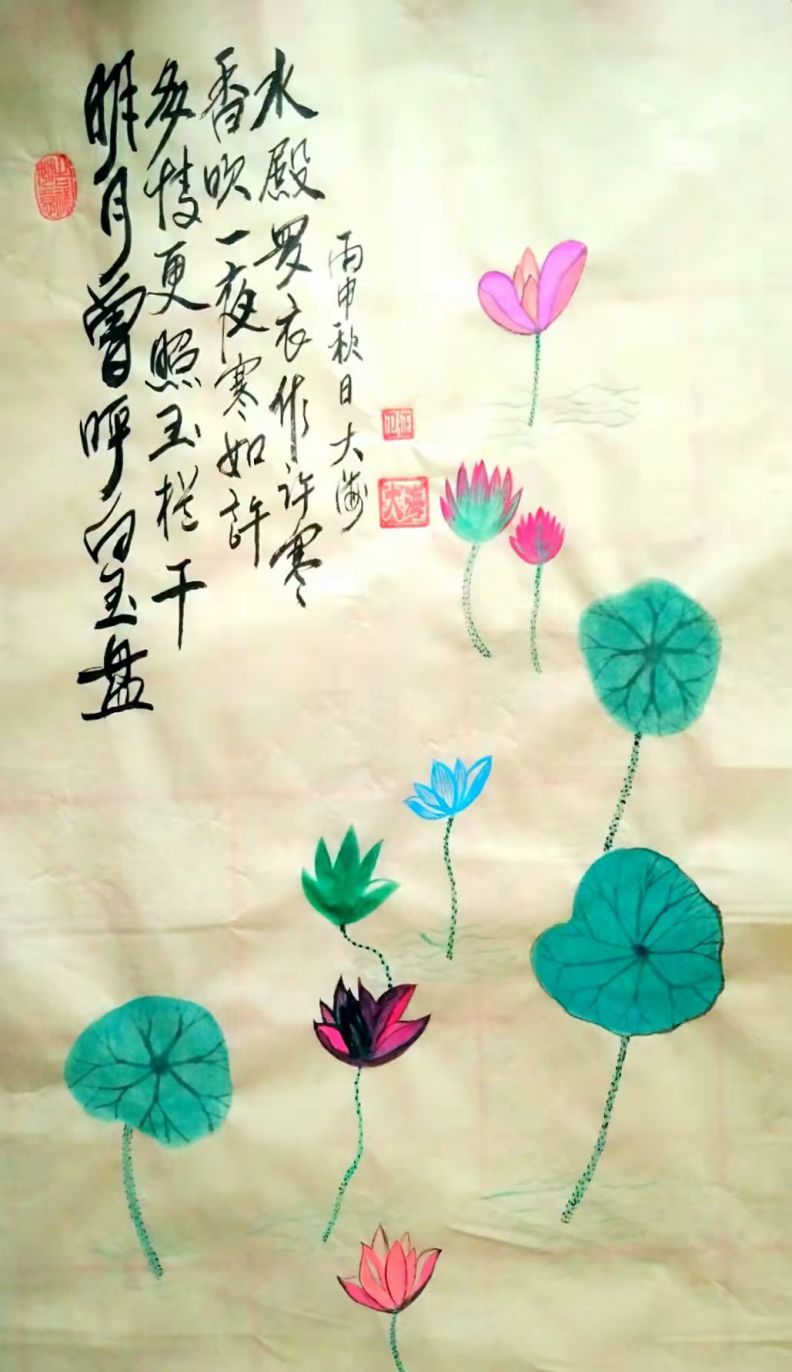 明月曾呼白玉盘
多情更照玉栏干
香吹一夜寒如许
水殿罗衣作许寒
丙申秋日大海
大海